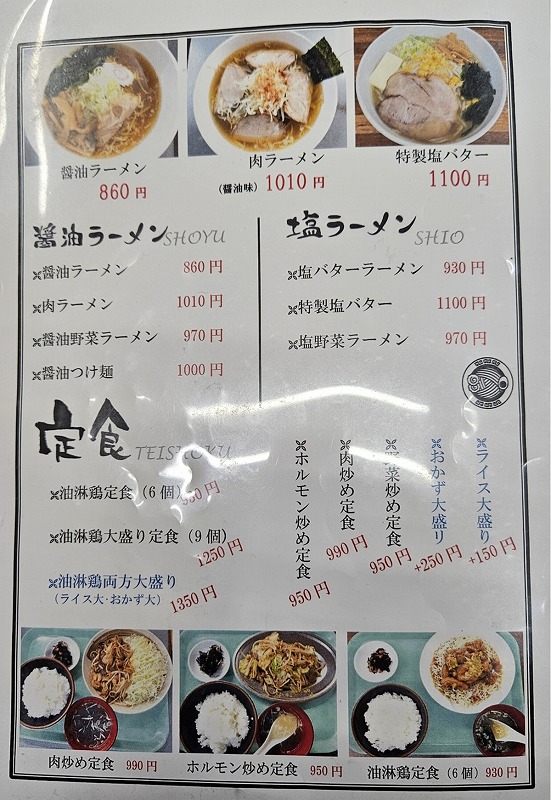 醤油ラーメン
860円
肉ラーメン
(醤油味) 1010円
特製塩バター
1100円
醤油ラーメン SHOYU
醤油ラーメン 860円
肉ラーメン 1010円
醤油野菜ラーメン 970円
醤油つけ麺 1000円
塩ラーメン SHIO
塩バターラーメン 930円
特製塩バター 1100円
塩野菜ラーメン 970円
定食 TEISHOKU
油淋鶏定食(6個) 930円
油淋鶏大盛り定食(9個)
1250円
油淋鶏両方大盛り
(ライス大・おかず大) 1350円
ライス大盛り +150円
おかず大盛り +250円
野菜炒め定食 950円
肉炒め定食 990円
ホルモン炒め定食 950円
肉炒め定食 990円
ホルモン炒め定食 950円
油淋鶏定食(6個) 930円